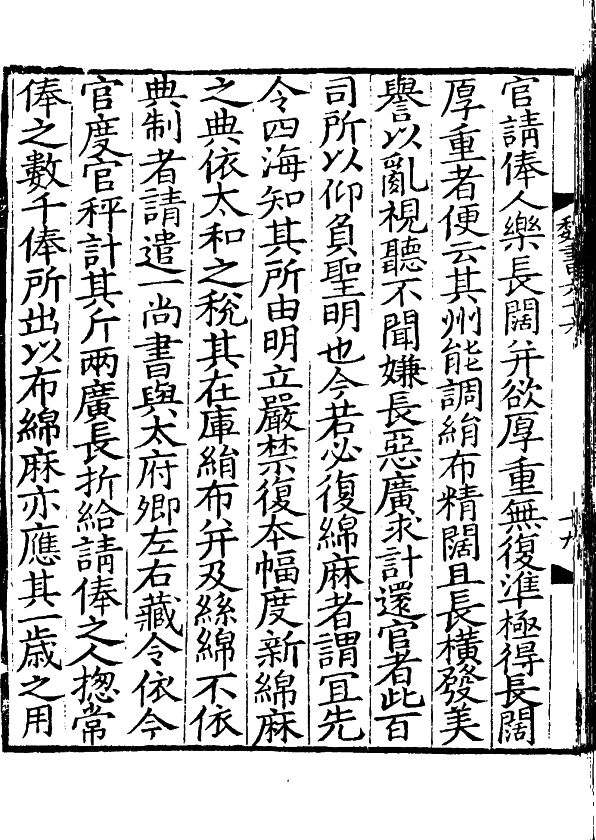 魏書
十九
官請俸人樂長闊并欲厚重無復準極得長闊
厚重者便云其州能調絹布精闊且長橫發美
譽以亂視聽不聞嫌長惡廣求計還官者此百
司所以仰負聖明也今若必復綿麻者謂冝先
令四海知其所由明立嚴禁復夲幅度新綿麻
之典依太和之稅其在庫絹布并及絲綿不依
典制者請遣一尚書與太府卿左右藏令依今
官度官秤計其斤兩廣長折給請俸之人揔常
俸之數千俸所出以布綿麻亦應其一歳之用